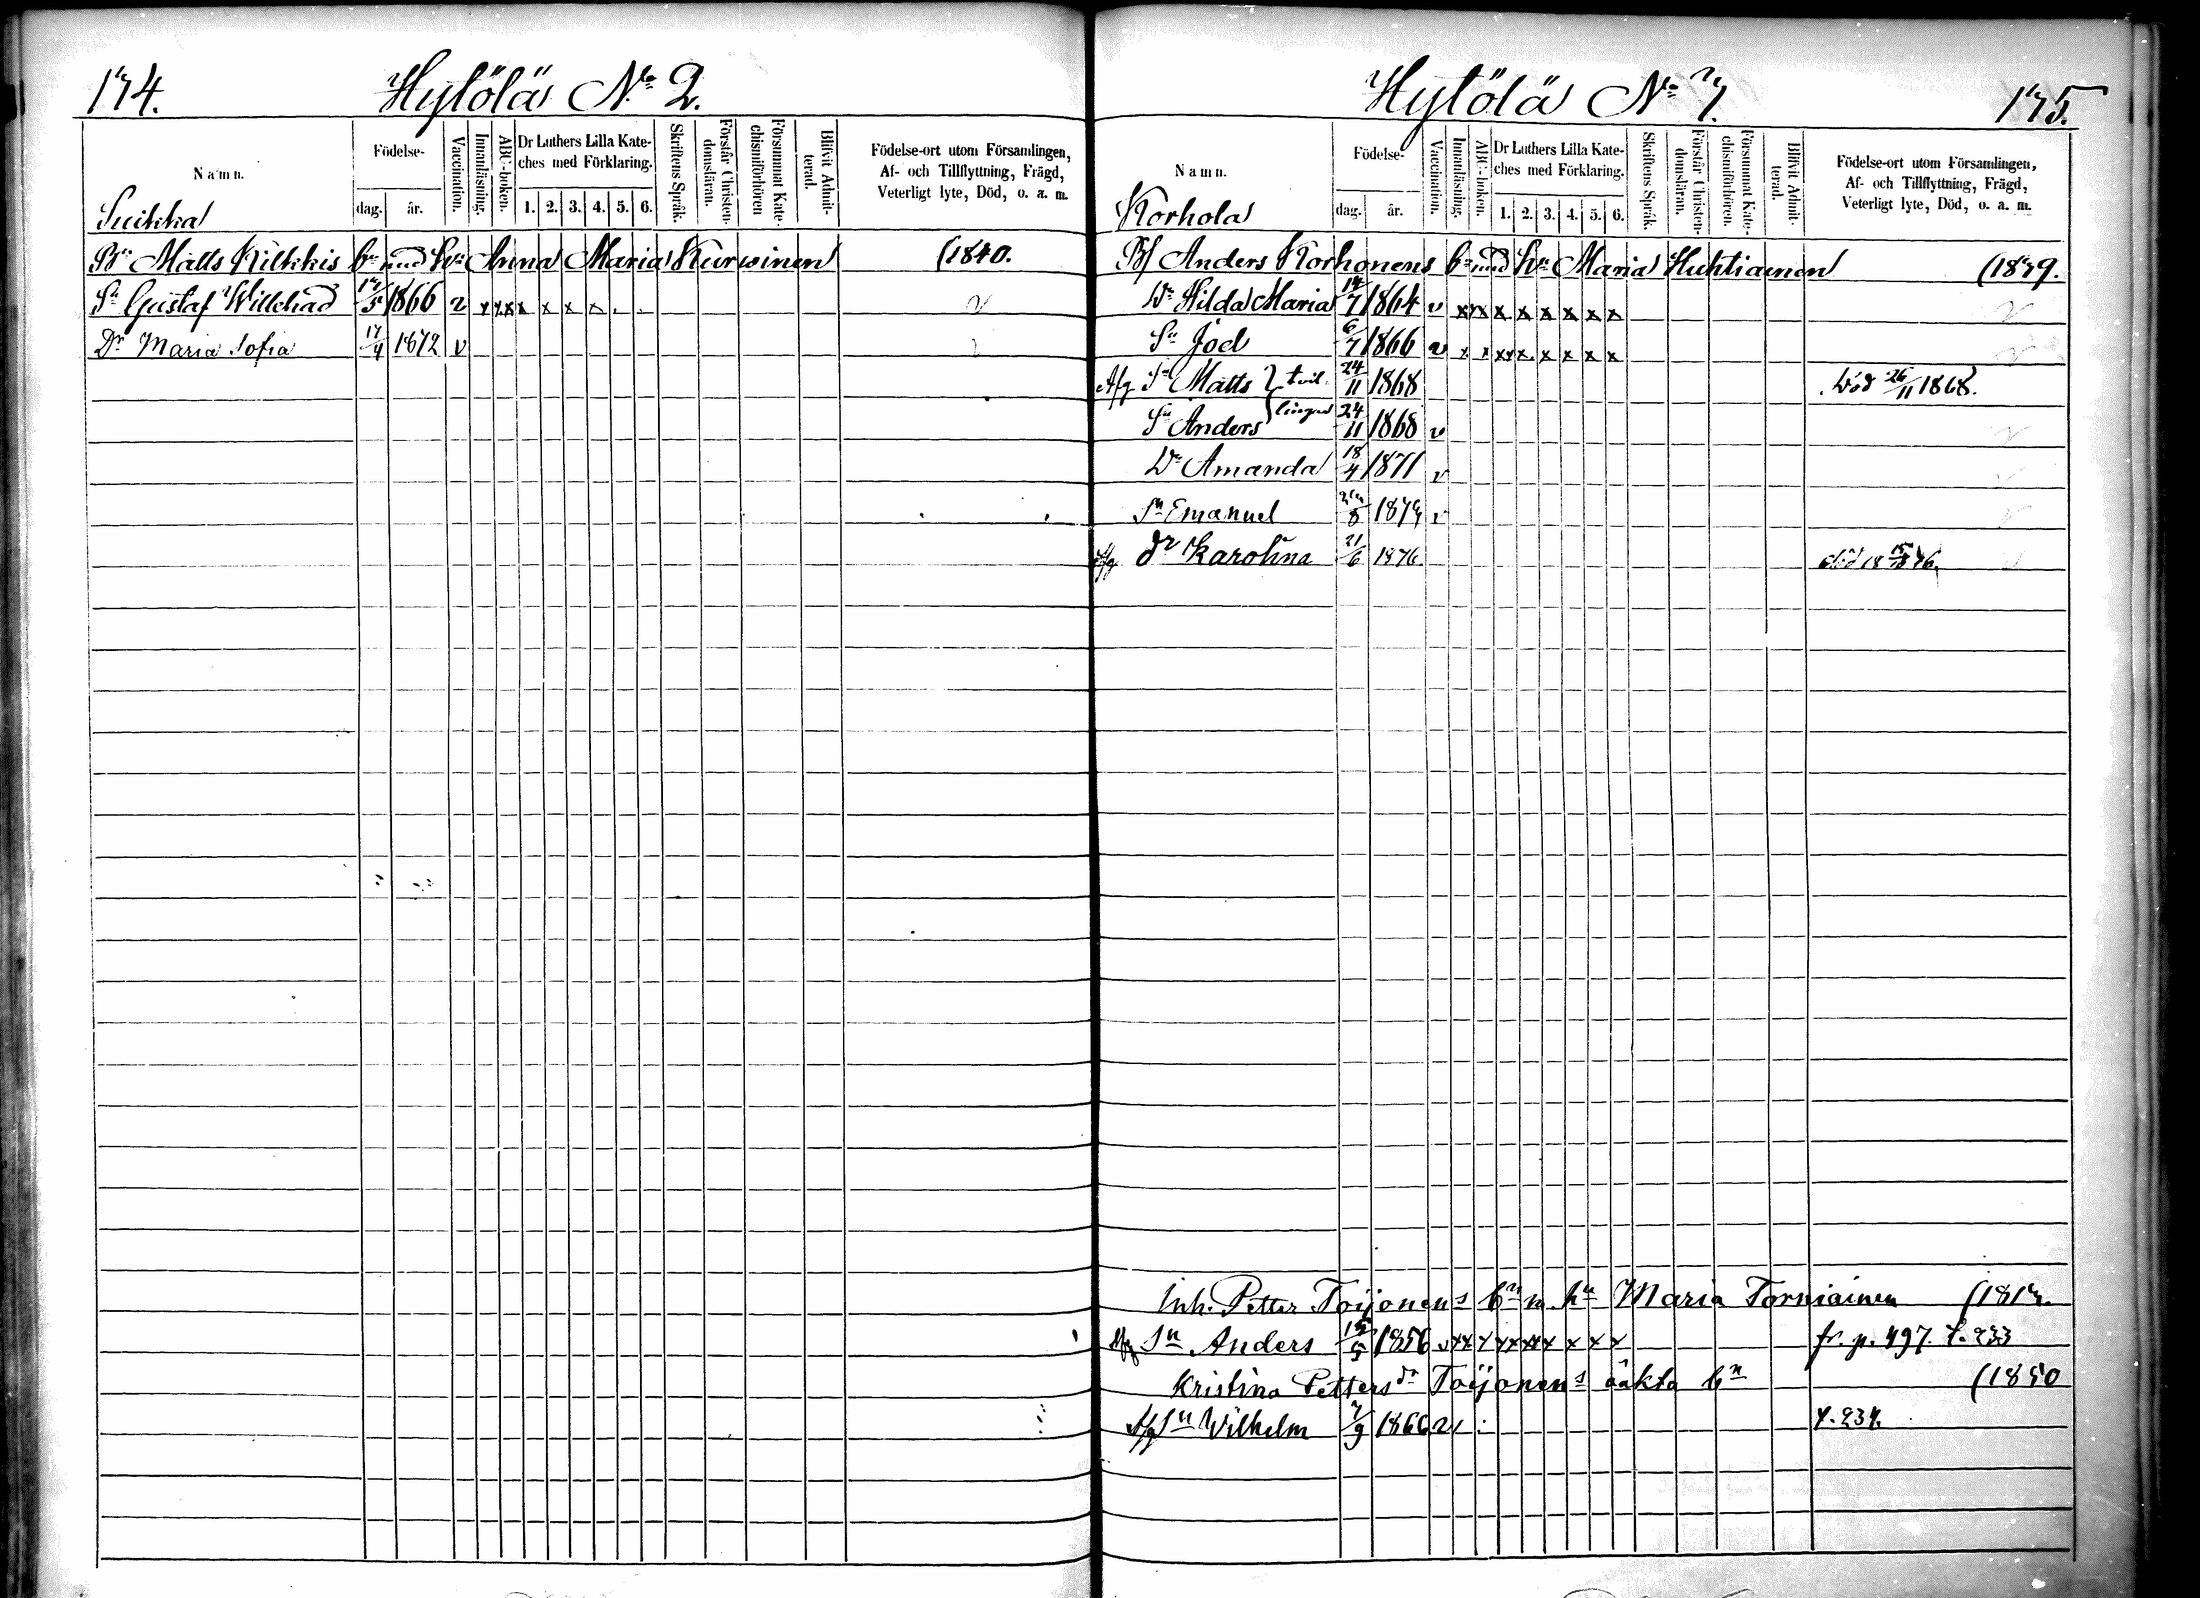 174.
Hytölä No 2.
Namn.
Födelse-
dag.
år.
Vaccination.
Innanläsning.
ABC-boken.
Dr Luthers Lilla Kate-
ches med Förklaring.
1. 2. 3. 4. 5. 6.
Skriftens Språk.
Förstår Christen-
domsläran.
Försummat Kate-
chismiförhören
Blifvit Admit-
terad.
Födelse-ort utom Församlingen,
Af- och Tillflyttning, Frägd,
Veterligt lyte, Död, o. a. m.
Suikka
Bn Matts Kilkkis bn med hu Anna Maria Kurwinen (1840.
Sn Gustaf Willehad 17/5 1866 v x x x x x x x
Dr Maria Sofia 17/4 1872 v
Hytölä No 7.
175.
Namn.
Födelse-
dag.
år.
Vaccination.
Innanläsning.
ABC-boken.
Dr Luthers Lilla Kate-
ches med Förklaring.
1. 2. 3. 4. 5. 6.
Skriftens Språk.
Förstår Christen-
domsläran.
Försummat Kate-
chismiförhören.
Blifvit Admit-
terad.
Födelse-ort utom Församlingen,
Af- och Tillflyttning, Frägd,
Veterligt lyte, Död, o. a. m.
Korhola
Anders Korhonens bn med hu Maria Huhtiainen (1849.
Dr Hilda Maria 14/7 1864 v x x x x x x x x x
Sn Joel 6/7 1866 v x x x x x x x x
Afg Sn Matts } tvil- 24/11 1868 Död 26/11 1868.
Sn Anders } lingar 24/11 1868 v
Dr Amanda 18/4 1871 v
Sn Emanuel 1874 v
Afg dr Karolina 21/6 1876. död
Inh. Petter Toijonens bn m. hu Maria Torniainen (1817.
Afg Sn Anders 1856 v x x x x x x x x x x fr. p. 497. f. 233
Kristina Pettersdr Toijonens oäkta bn (1850
Afg Sn Wilhelm 7/9 1866 v f. 234.